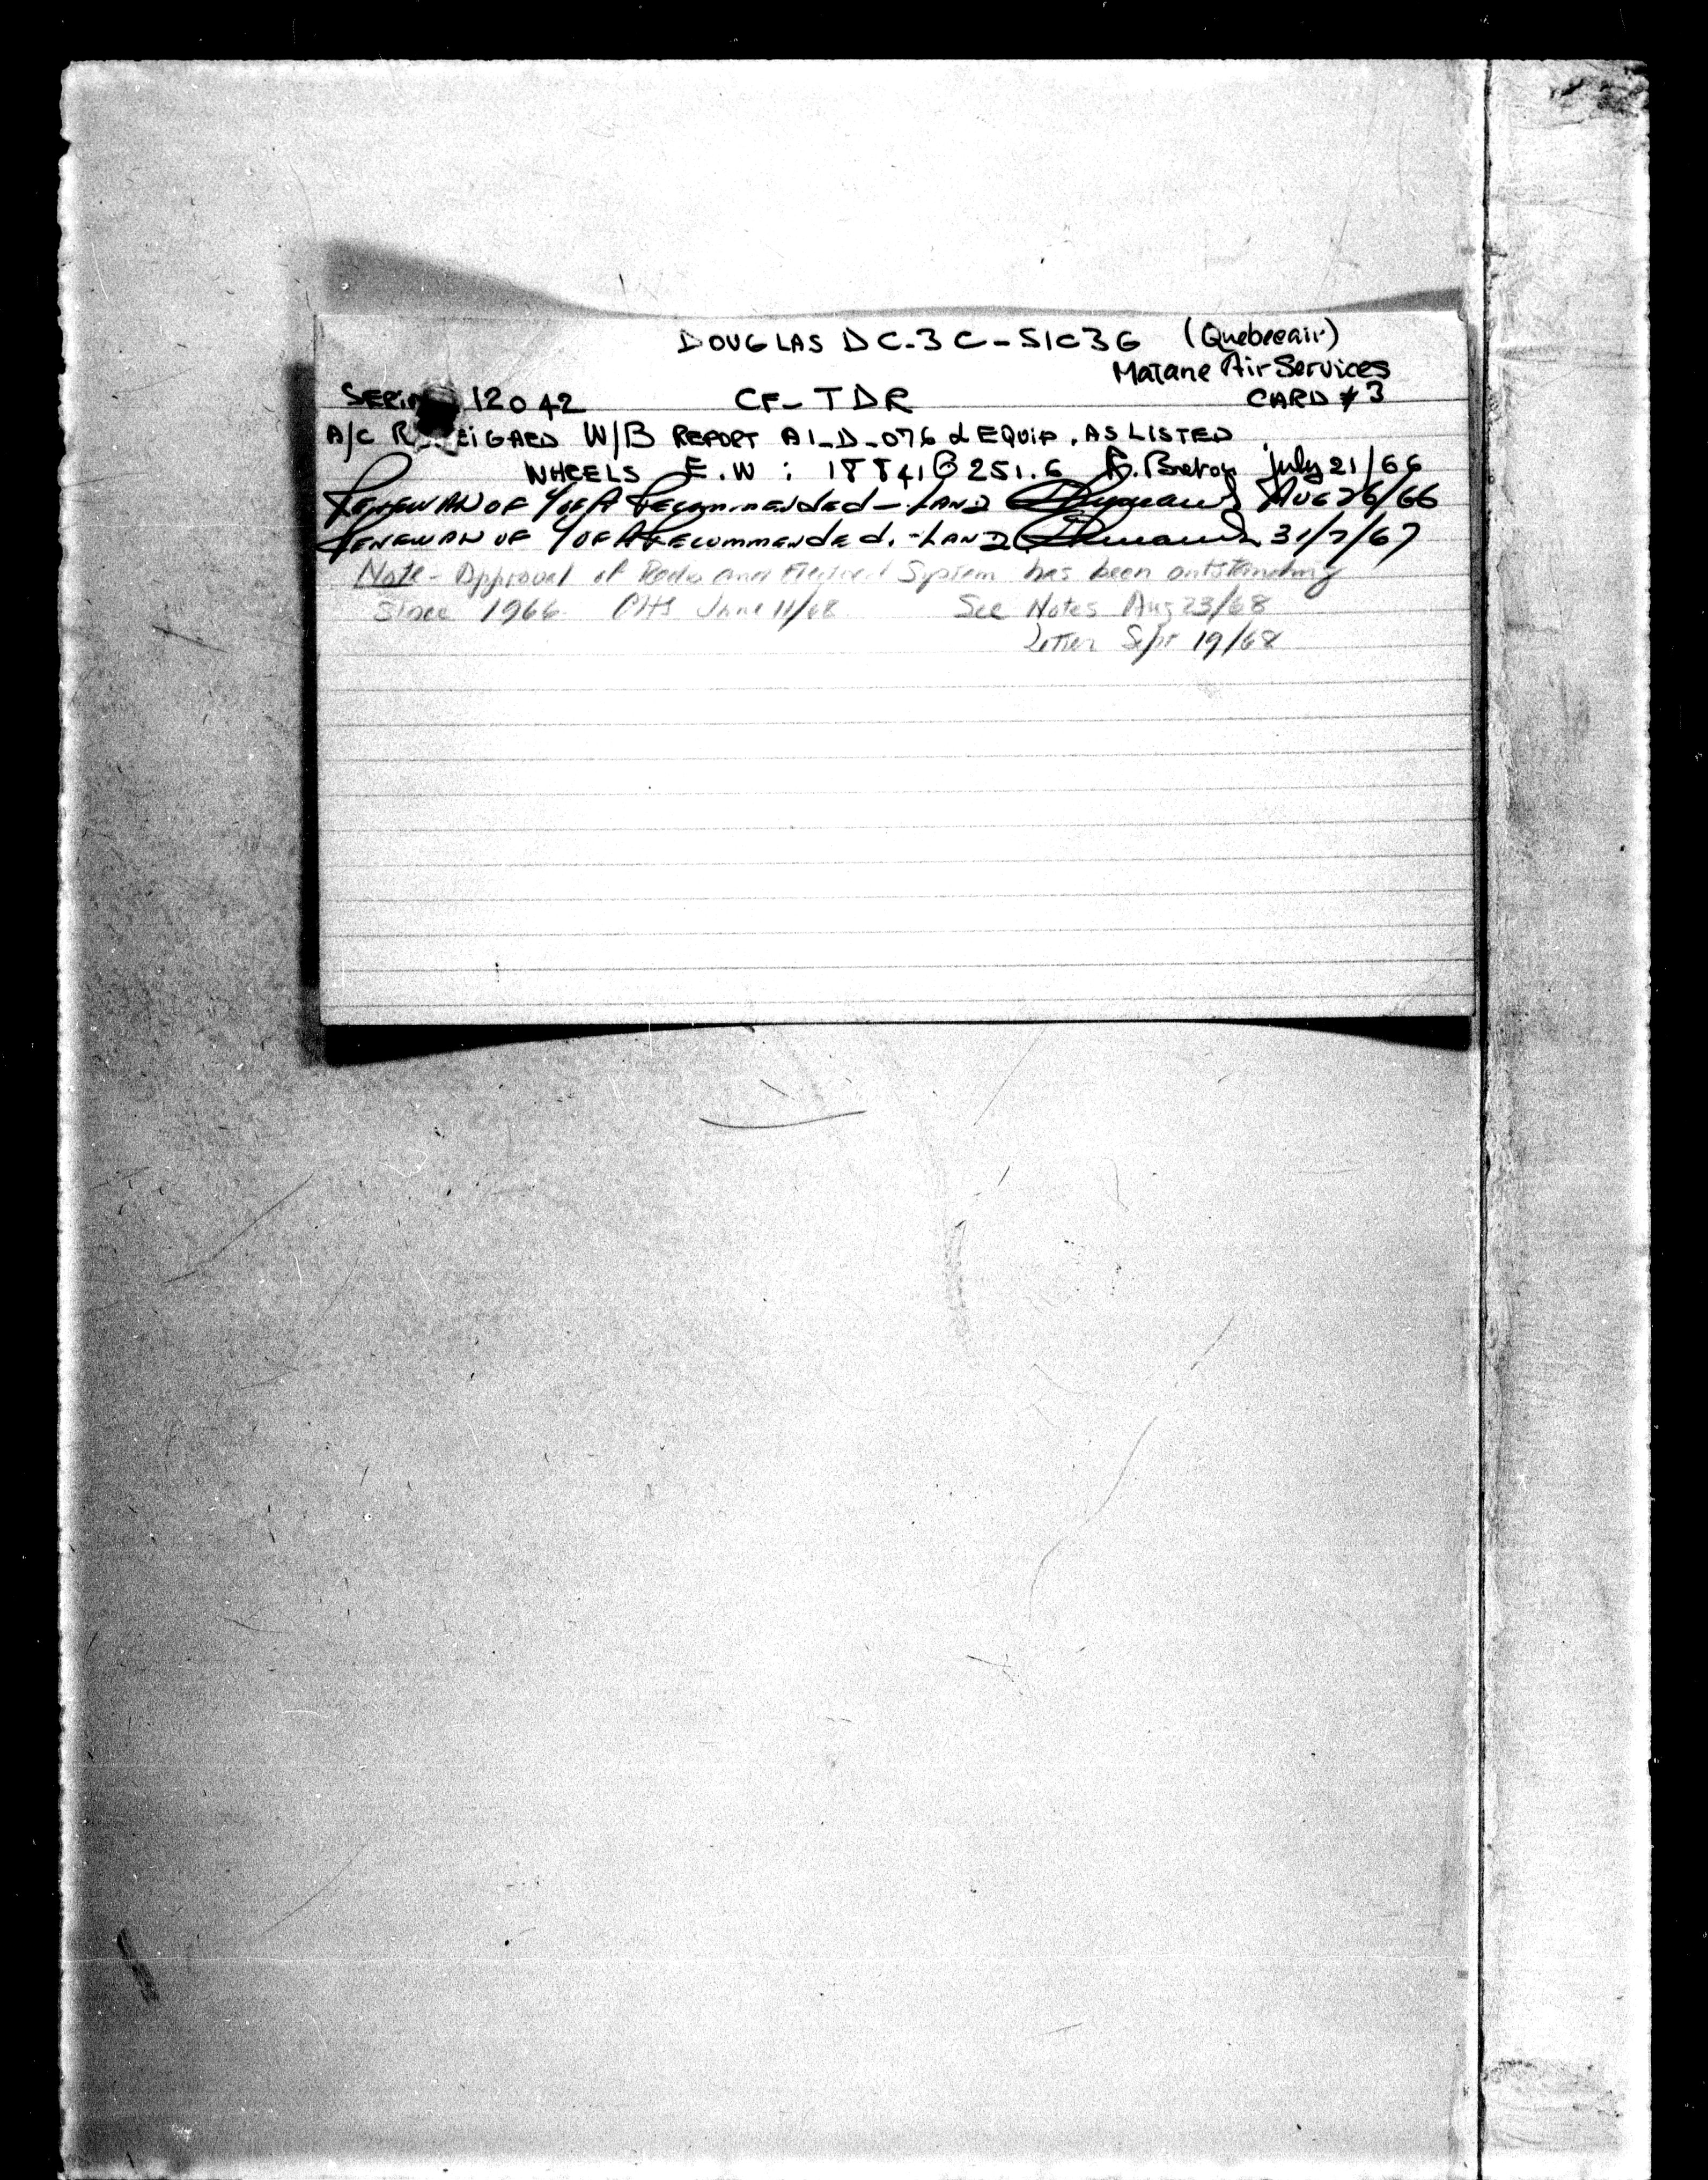 DOUGLAS DC-3C-S1C3G (Quebecair)
Matane Air Services
SERIAL 12042 CF-TDR CARD #3
A/C REWEIGHED W/B REPORT A1-D-076 & EQUIP. AS LISTED
WHEELS E.W : 18841 @ 251.6 Breton July 21/66
Renewal of C of A Recommended - LAND AUG 26/66
Renewal of C of A Recommended. - LAND 31/7/67
Note - Approval of Radio and Electrical System has been outstanding
since 1966 June 11/68 See Notes Aug 23/68
Letter Sept 19/68